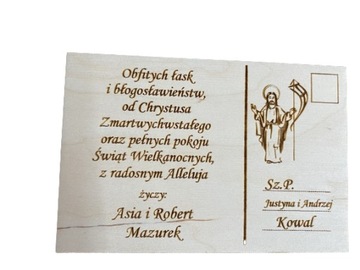 Obfitych łask
i błogosławieństw,
od Chrystusa
Zmartwychwstałego
oraz pełnych pokoju
Świąt Wielkanocnych,
z radosnym Alleluja
życzy:
Asia i Robert
Mazurek
Sz.P.
Justyna i Andrzej
Kowal